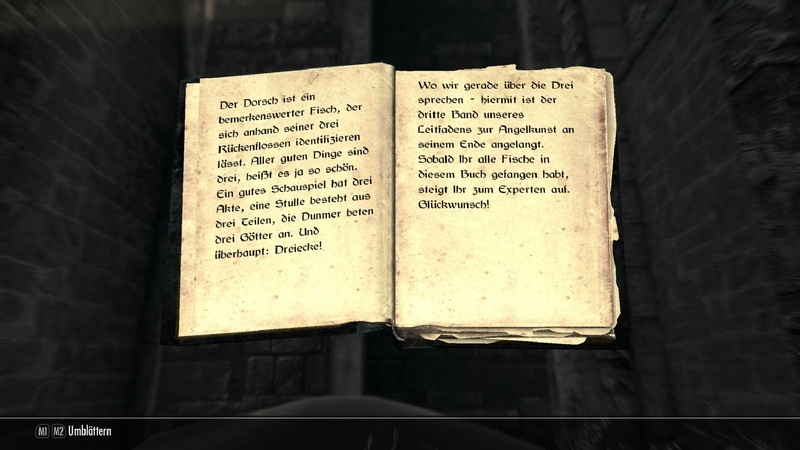 Der Dorsch ist ein
bemerkenswerter Fisch, der
sich anhand seiner drei
Rückenflossen identifizieren
lässt. Aller guten Dinge sind
drei, heißt es ja so schön.
Ein gutes Schauspiel hat drei
Akte, eine Stulle besteht aus
drei Teilen, die Dunmer beten
drei Götter an. Und
überhaupt: Dreiecke!
Wo wir gerade über die Drei
sprechen - hiermit ist der
dritte Band unseres
Leitfadens zur Angelkunst an
seinem Ende angelangt.
Sobald Ihr alle Fische in
diesem Buch gefangen habt,
steigt Ihr zum Experten auf.
Glückwunsch!
M1 M2 Umblättern